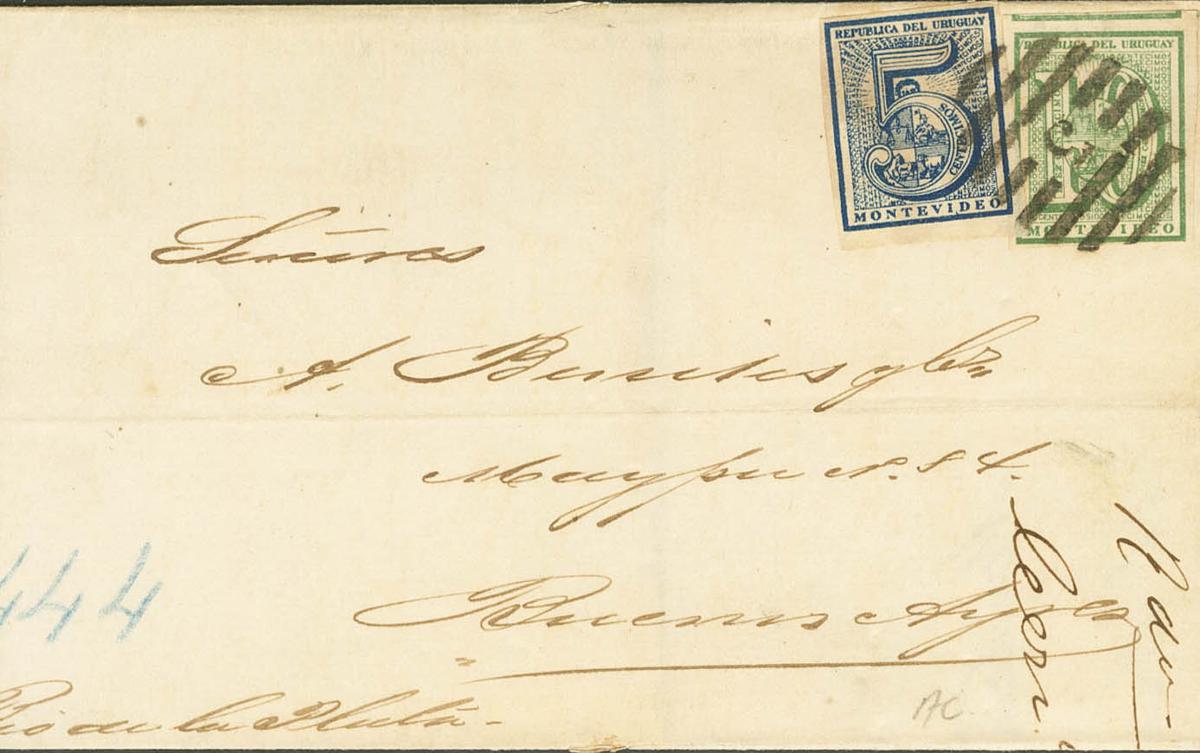 REPUBLICA DEL URUGUAY
5
CENTECIMOS
MONTEVIDEO
REPUBLICA DEL URUGUAY
10
MONTEVIDEO
Señores
A. Benites y
Maypu N. 84.
Buenos Ayres
444
Rio de la Plata
AC